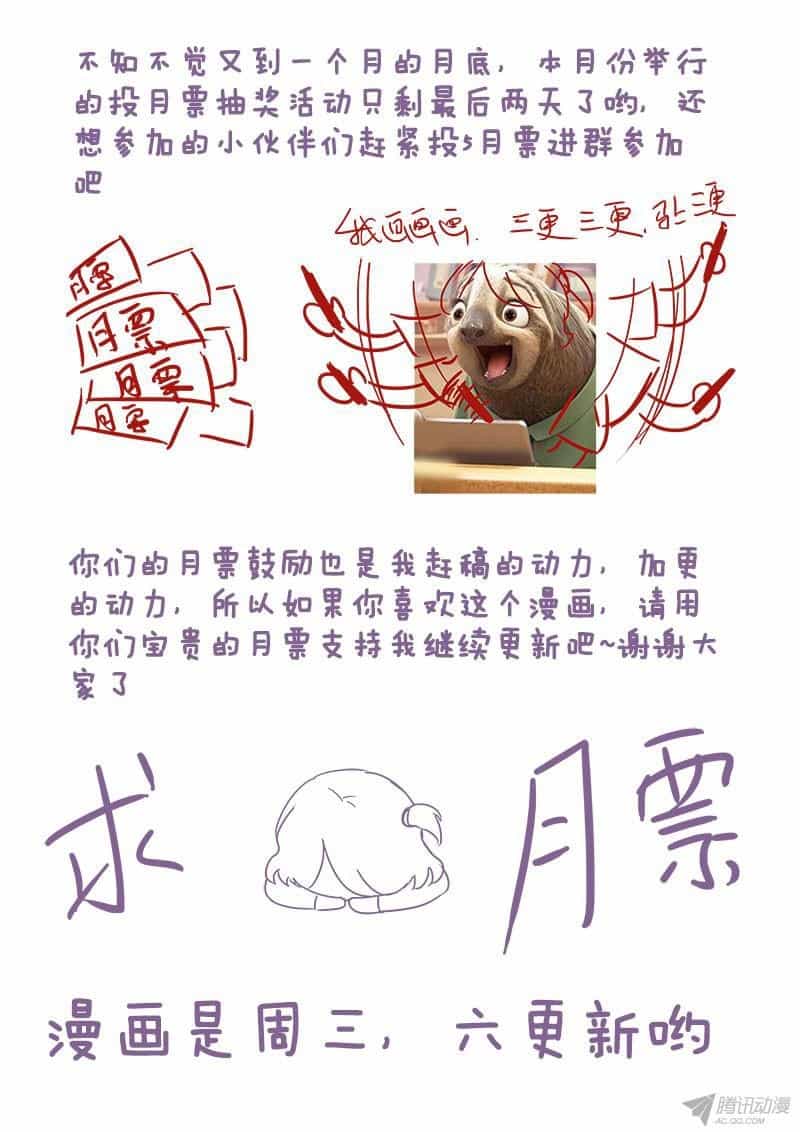 不知不觉又到一个月的月底，本月份举行
的投月票抽奖活动只剩最后两天了哟，还
想参加的小伙伴们赶紧投5月票进群参加
吧
我画画画． 三更三更，马上三更
月票
月票
月票
月票
你们的月票鼓励也是我赶稿的动力，加更
的动力，所以如果你喜欢这个漫画，请用
你们宝贵的月票支持我继续更新吧~谢谢大
家了
求 月票
漫画是周三，六更新哟
腾讯动漫
AC.QQ.COM